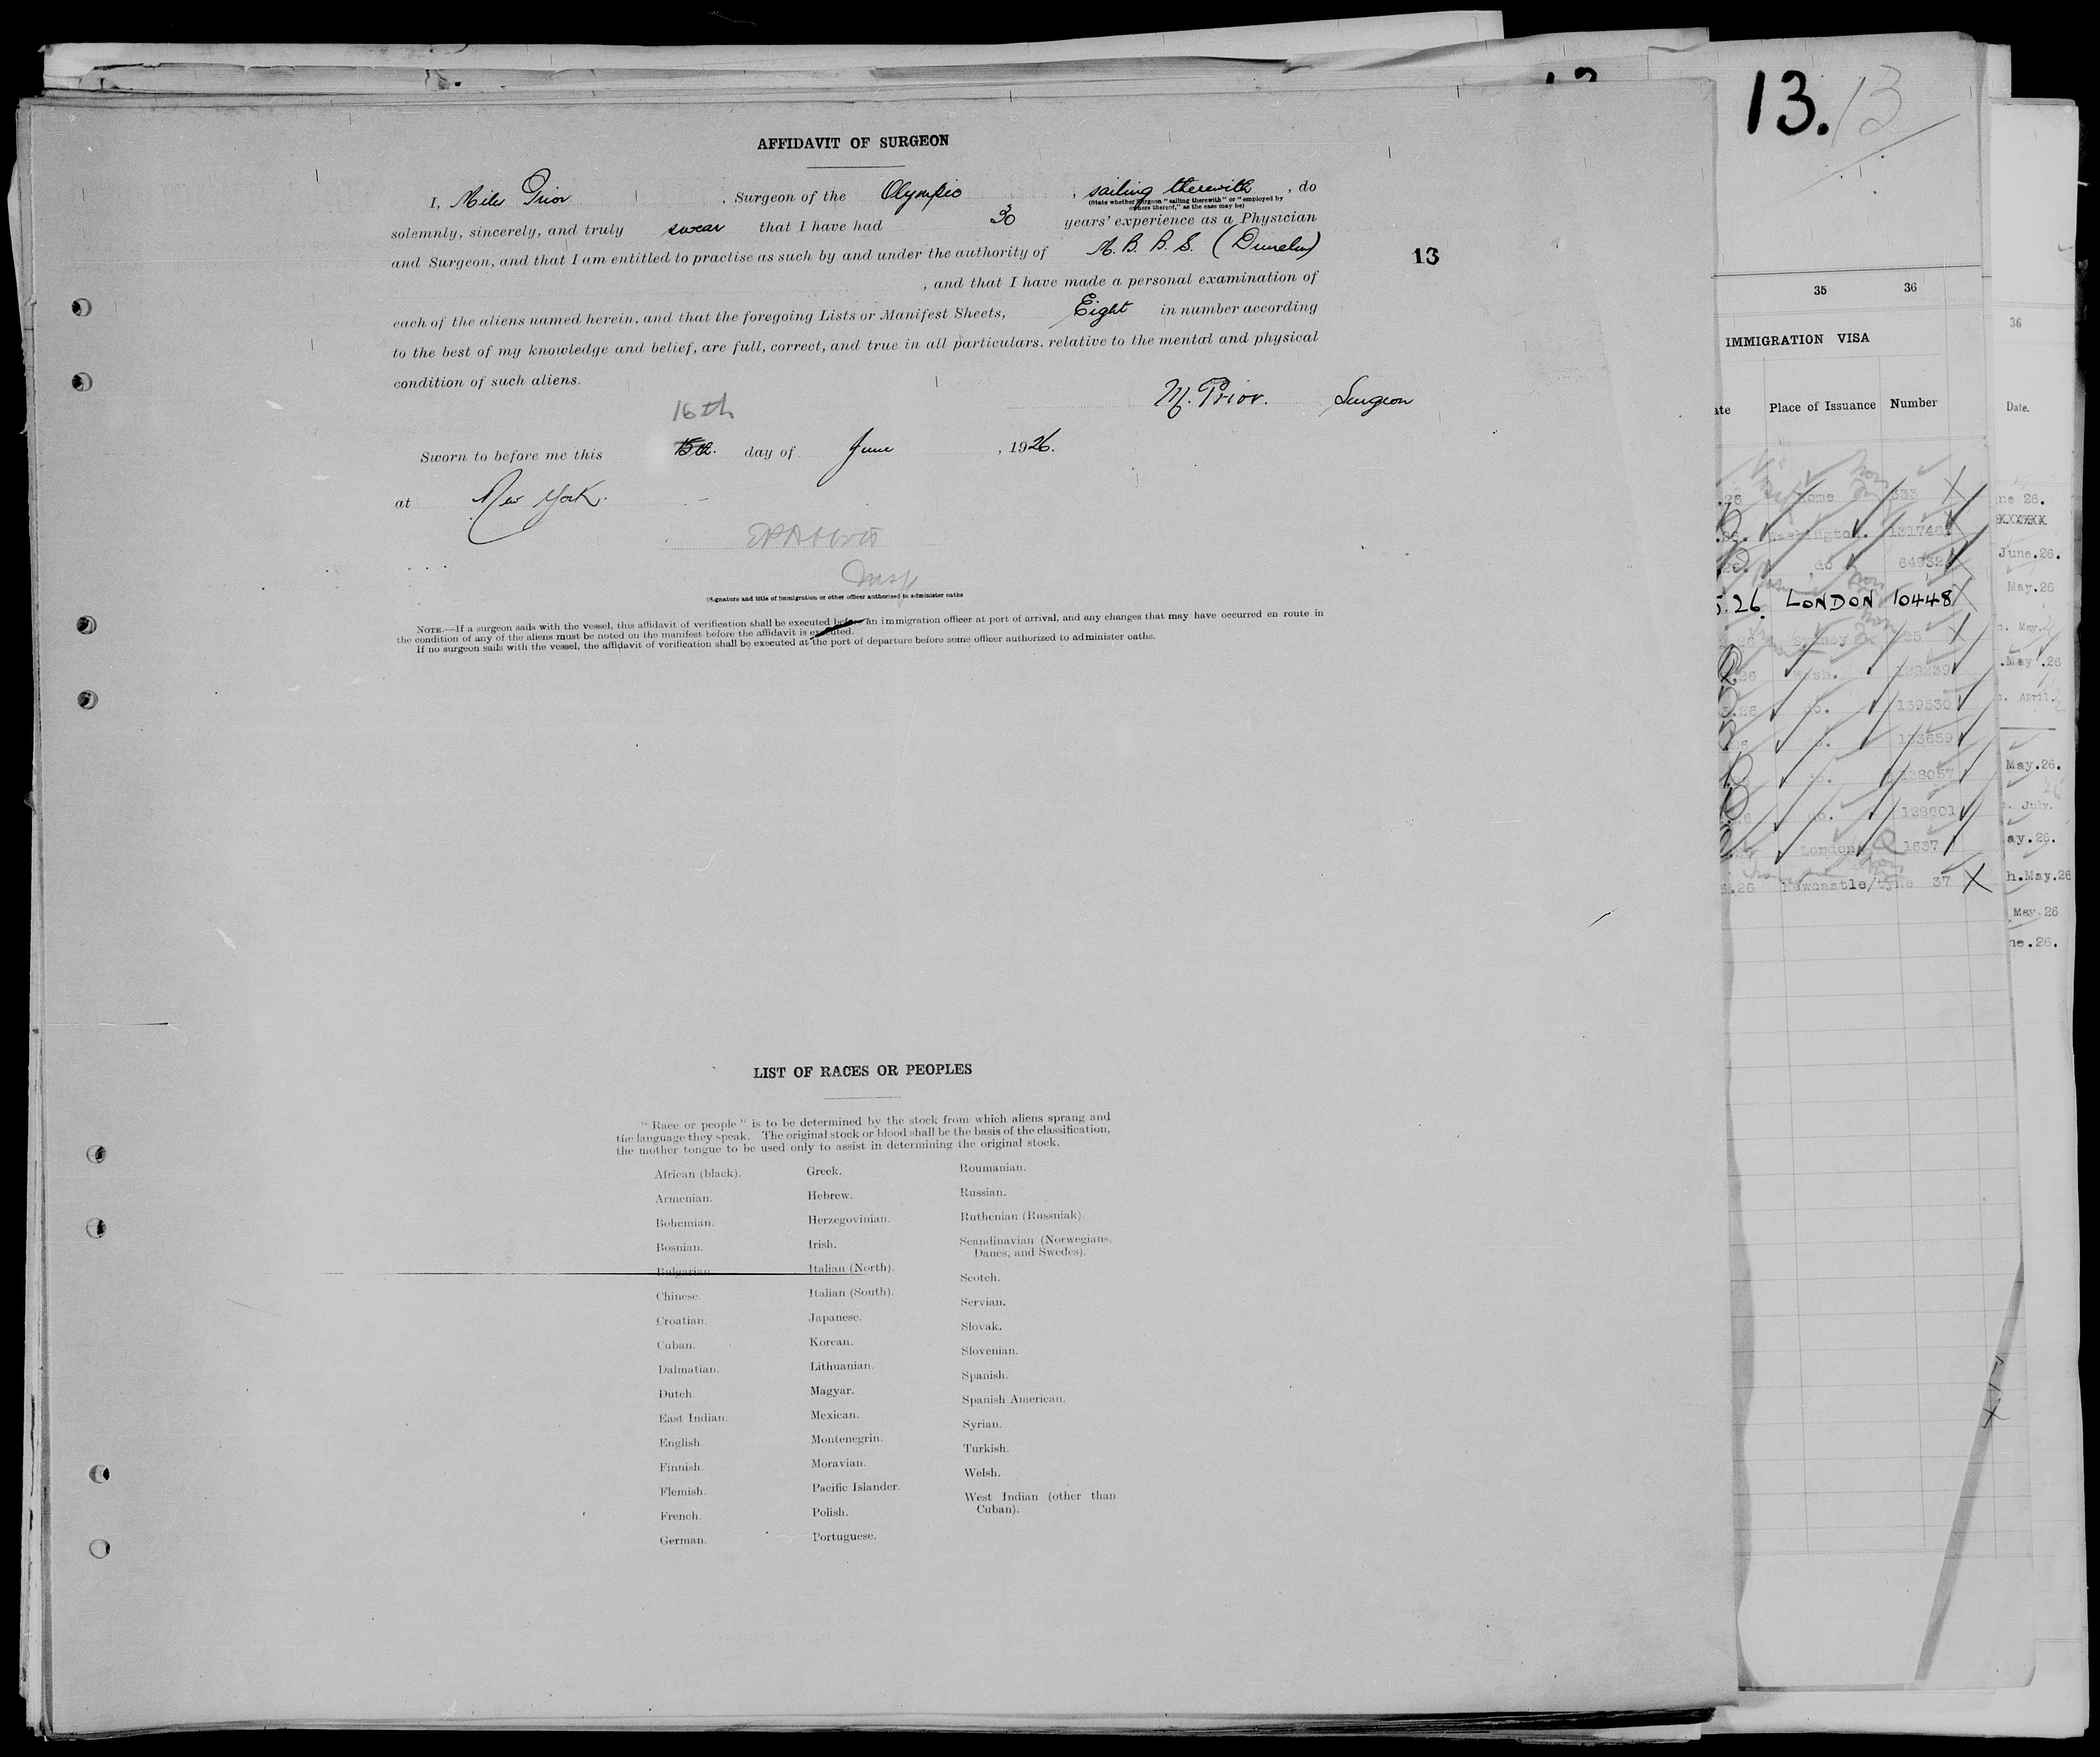 AFFIDAVIT OF SURGEON
I, Miles Prior , Surgeon of the Olympic , sailing therewith , do
(State whether surgeon "sailing therewith" or "employed by
owners thereof," as the case may be)
solemnly, sincerely, and truly swear that I have had 30 years' experience as a Physician
and Surgeon, and that I am entitled to practise as such by and under the authority of M. B. B. S. (Dunelm)
, and that I have made a personal examination of
each of the aliens named herein, and that the foregoing Lists or Manifest Sheets, Eight in number according
to the best of my knowledge and belief, are full, correct, and true in all particulars. relative to the mental and physical
condition of such aliens.
M. Prior. Surgeon
16th
Sworn to before me this 15th. day of June , 1926.
at New York.
Insp
(Signature and title of immigration or other officer authorized to administer oaths
NOTE.—If a surgeon sails with the vessel, this affidavit of verification shall be executed before an immigration officer at port of arrival, and any changes that may have occurred en route in
the condition of any of the aliens must be noted on the manifest before the affidavit is executed.
If no surgeon sails with the vessel, the affidavit of verification shall be executed at the port of departure before some officer authorized to administer oaths.
13
LIST OF RACES OR PEOPLES
"Race or people" is to be determined by the stock from which aliens sprang and
the language they speak. The original stock or blood shall be the basis of the classification,
the mother tongue to be used only to assist in determining the original stock.
African (black).
Armenian.
Bohemian.
Bosnian.
Bulgarian.
Chinese.
Croatian.
Cuban.
Dalmatian.
Dutch.
East Indian.
English.
Finnish.
Flemish.
French.
German.
Greek.
Hebrew.
Herzegovinian.
Irish.
Italian (North).
Italian (South).
Japanese.
Korean.
Lithuanian.
Magyar.
Mexican.
Montenegrin.
Moravian.
Pacific Islander.
Polish.
Portuguese.
Roumanian.
Russian.
Ruthenian (Russniak).
Scandinavian (Norwegians,
Danes, and Swedes).
Scotch.
Servian.
Slovak.
Slovenian.
Spanish.
Spanish American.
Syrian.
Turkish.
Welsh.
West Indian (other than
Cuban).
13. 13
35 36
IMMIGRATION VISA
Place of Issuance Number
Rome 333
Washington. 131746
do 64932
.26 LONDON 10448
Sydney
.26 Wash.
.26 do. 139530
133659
do. 138057
do. 128601
London 1637
.26 Newcastle/tyne 37
36
Date.
ne 26.
XXXXX
June.26.
May.26
May.
.May.26
April.
May.26.
July.
ay.26.
h.May.26
May.26
ne.26.